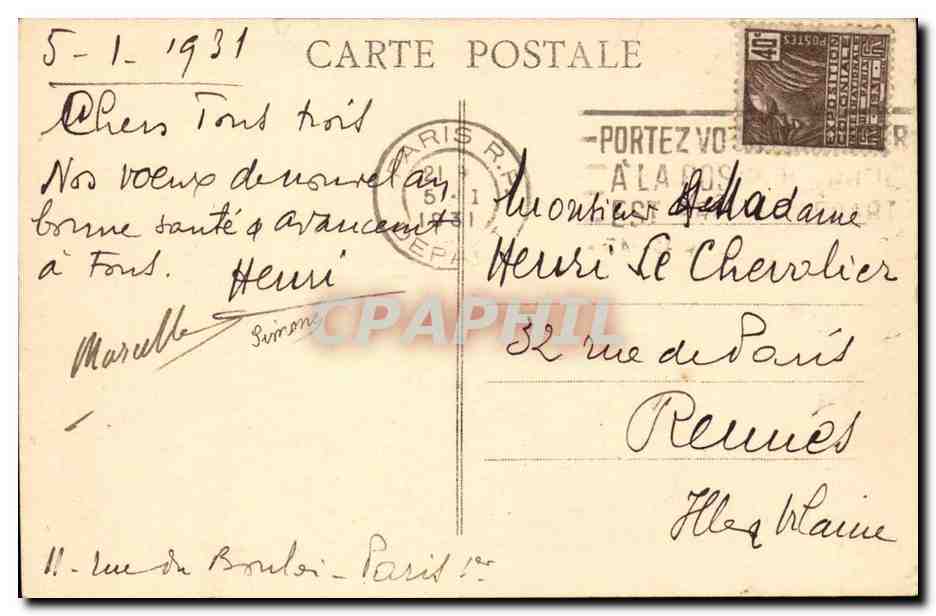 5-1-1931
CARTE POSTALE
Chers Tous trois
Nos voeux de nouvel an
bonne santé & avancemt
à Tous.
Henri
Marcelle
Simone
11 - rue du Bouloi - Paris 1er
40c
POSTES
EXPOSITION
COLONIALE
INTERNATIONALE
PARIS 1931
PARIS R.P.
21
5 - I
1931
DEPART
PORTEZ VO
À LA POS
EST
Monsieur & Madame
Henri Le Chevalier
32 rue de Paris
Rennes
Ille & Vilaine
CPAPHIL